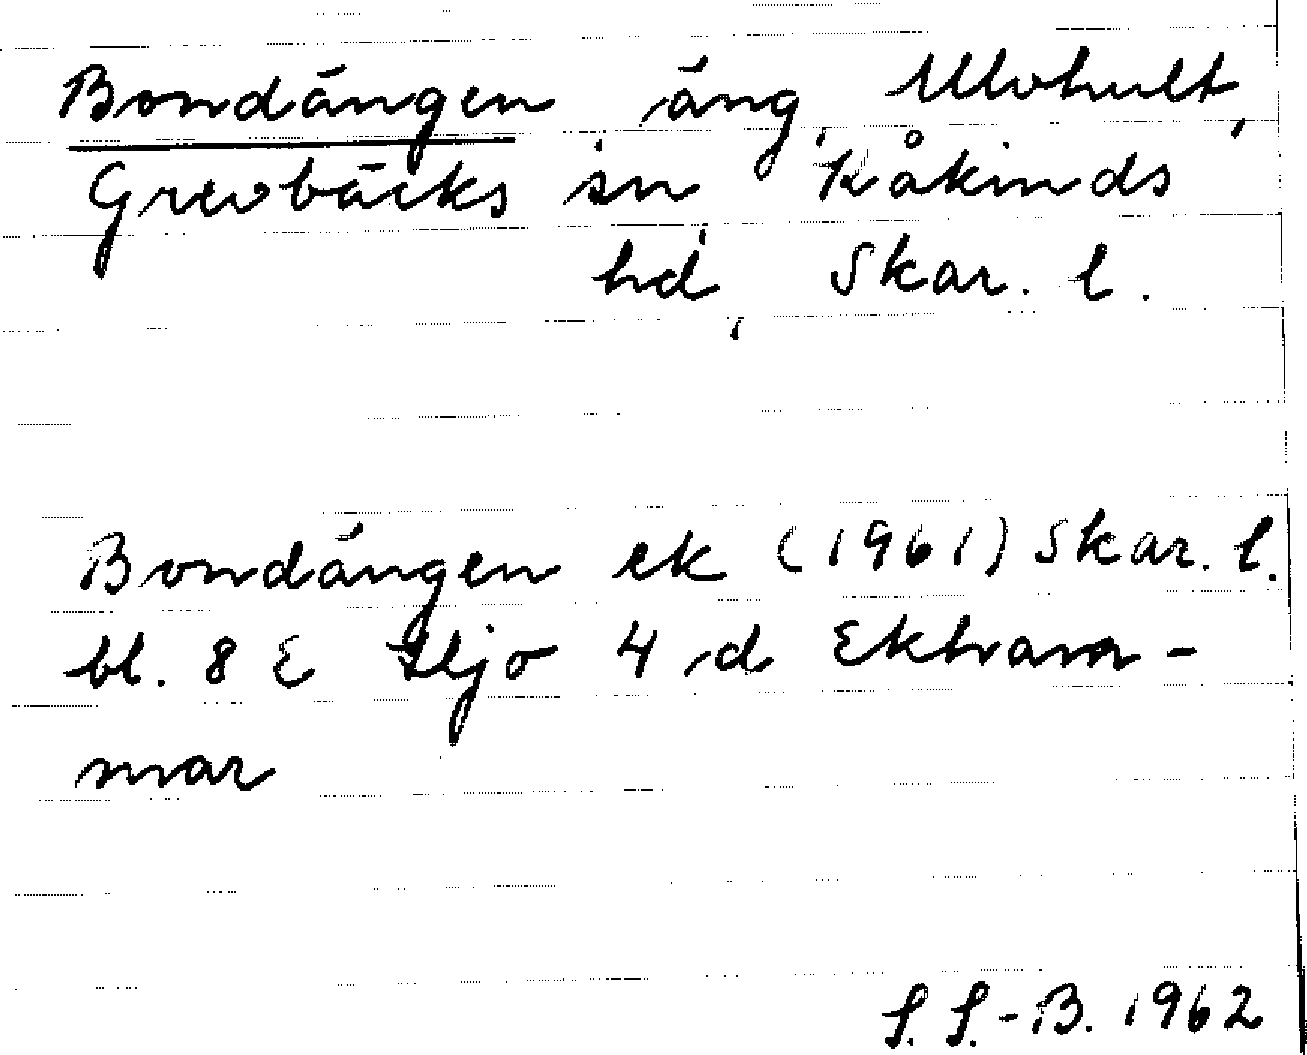 Bondängen äng, Ulvhult,
Grevbäcks sn, Kåkinds
hd, Skar. l.
Bondängen ek (1961) Skar. l.
bl. 8 E Hjo 4 d
mar
S. S.-B. 1962